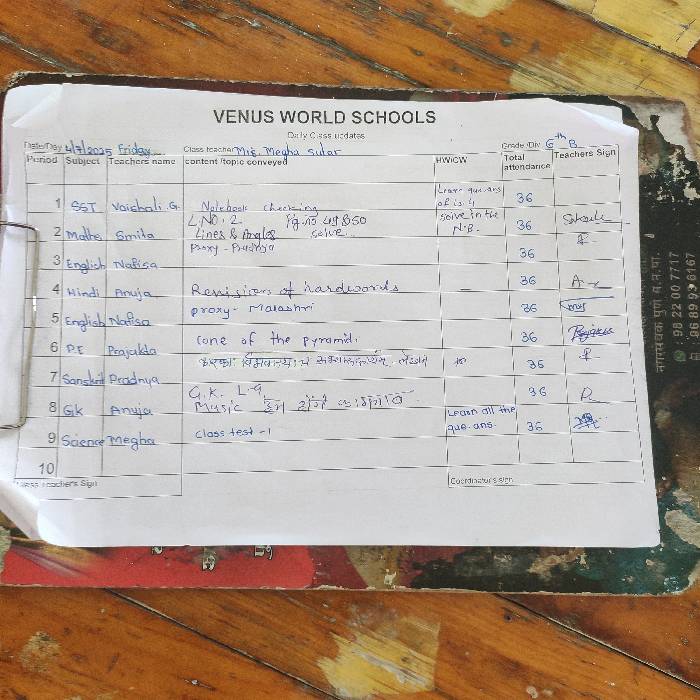 VENUS WORLD SCHOOLS
Daily Class updates
Date/Day 4/7/2025 Friday Class teacher Mis. Megha Sutar Grade /Div 6th B
Period Subject Teachers name content /topic conveyed HW/CW Total attendance Teachers Sign
1 SST Vaishali.G. Notebook checking Learn que.ans of L.S. 4 36
2 Maths Smita L.NO. 2. Pg.no 49 & 50 Lines & Angles solve solve in the N.B. 36
3 English Nafisa Proxy - Pradnya 36
4 Hindi Anuja Revision of hardwords — 36
5 English Nafisa proxy- Malashri 36
6 P.E Prajakta Cone of the pyramid. 36
7 Sanskrit Pradnya 36
8 GK Anuja G.K. L-9 Music 36
9 Science Megha Class test -1 Learn all the que.ans. 36
10
Class Teachers Sign Coordinator's sign
98 22 00 7717